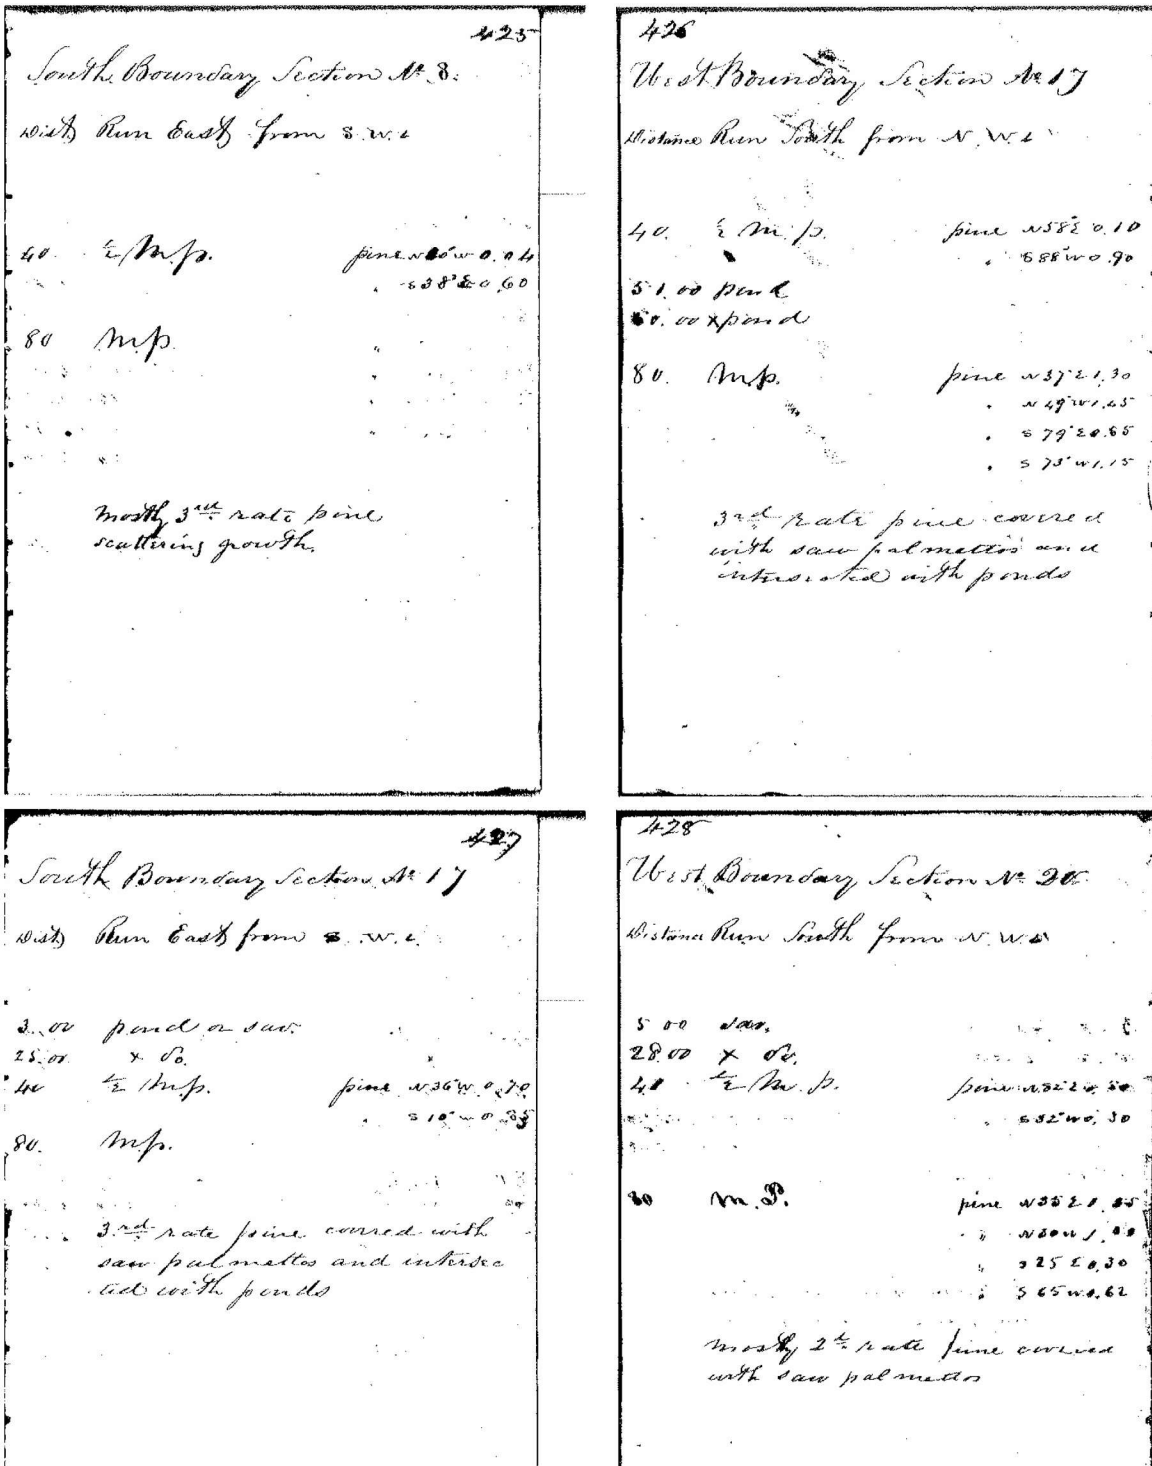 425
South Boundary Section № 8.
Dist) Run East from S. W. c
40. ½ M. p. pine W 0.04
" S 38° E 0.60
80 M.p. "
mostly 3rd rate pine
scattering growth.
426
West Boundary Section № 17
Distance Run South from N. W. c
40. ½ M. p. pine N 58° E 0.10
" S 88° W 0.90
51.00 pond
60.00 x pond
80. M.p. pine N 37° E 1.30
" N 49° W 1.45
" S 79° E 0.65
" S 73° W 1.15
3rd rate pine covered
with saw palmettos and
intersected with ponds
427
South Boundary Section № 17
Dist) Run East from S. W. c.
3.00 pond or sav.
25.00 x do.
40 ½ M.p. pine N 36° W 0.70
" S 10° W 0.35
80. M.p.
3rd rate pine covred with
saw palmettos and intersec
ted with ponds
428
West Boundary Section № 20
Distance Run South from N. W. c
5 00 sav.
28.00 x do.
40 ½ M. p. pine
" S 32° W 0.30
80 M. P. pine N 35 E
" W
" S 25 E 0.30
" S 65 W 0.62
mostly 2d rate pine covered
with saw palmettos